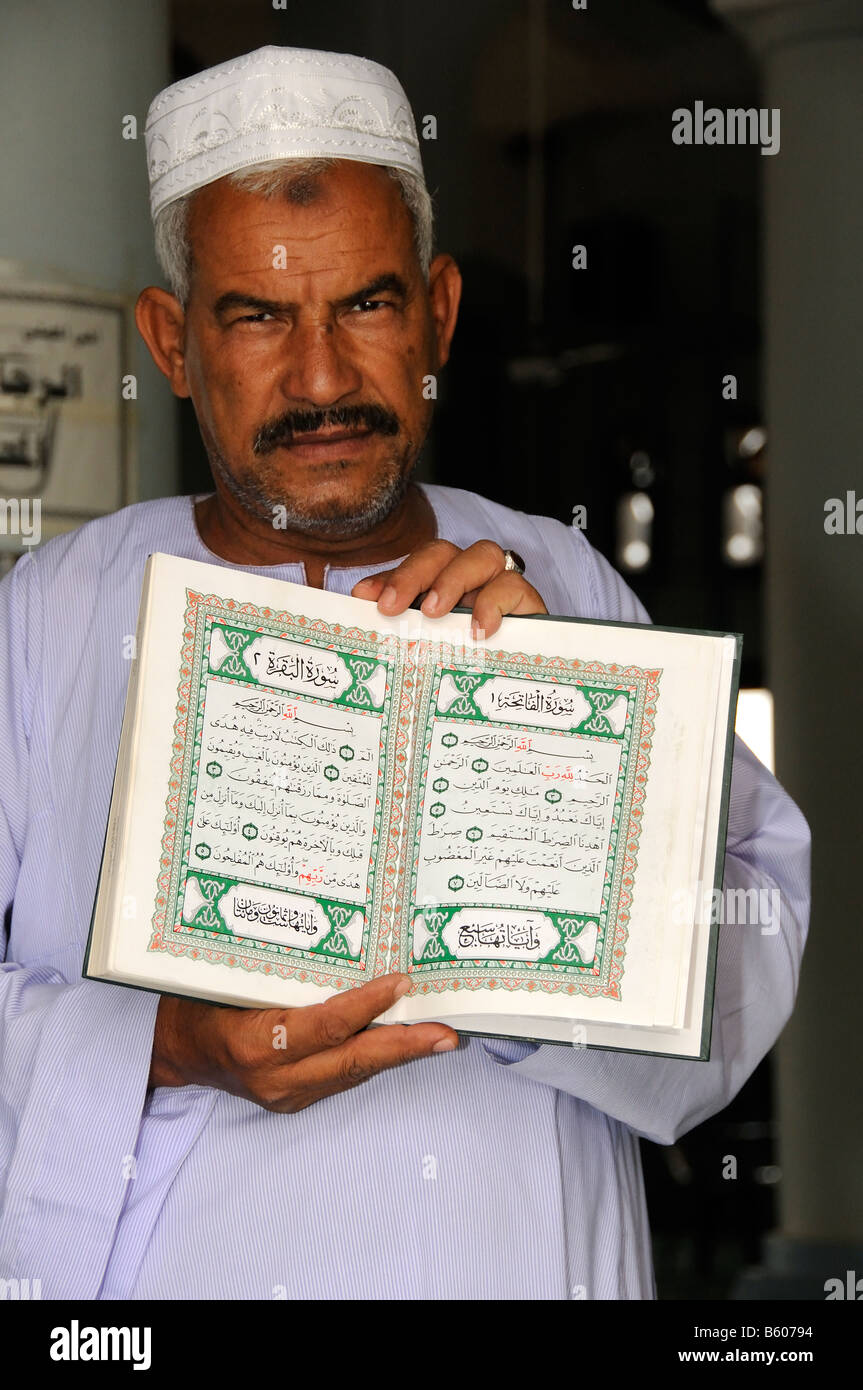 سورة الفاتحة ١
بسم الله الرحمن الرحيم ١
الحمد لله رب العلمين ٢ الرحمن
الرحيم ٣ ملك يوم الدين ٤
إياك نعبد وإياك نستعين ٥
اهدنا الصرط المستقيم ٦ صرط
الذين أنعمت عليهم غير المغضوب
عليهم ولا الضالين ٧
وآياتها سبع
سورة البقرة ٢
بسم الله الرحمن الرحيم
الم ١ ذلك الكتب لا ريب فيه هدى
للمتقين ٢ الذين يؤمنون بالغيب ويقيمون
الصلوة ومما رزقنهم ينفقون ٣
والذين يؤمنون بما أنزل إليك وما أنزل من
قبلك وبالآخرة هم يوقنون ٤ أولئك على
هدى من ربهم وأولئك هم المفلحون ٥
وآياتها ست وثمانون ومائتان
alamy
alamy
Image ID: B60794
www.alamy.com